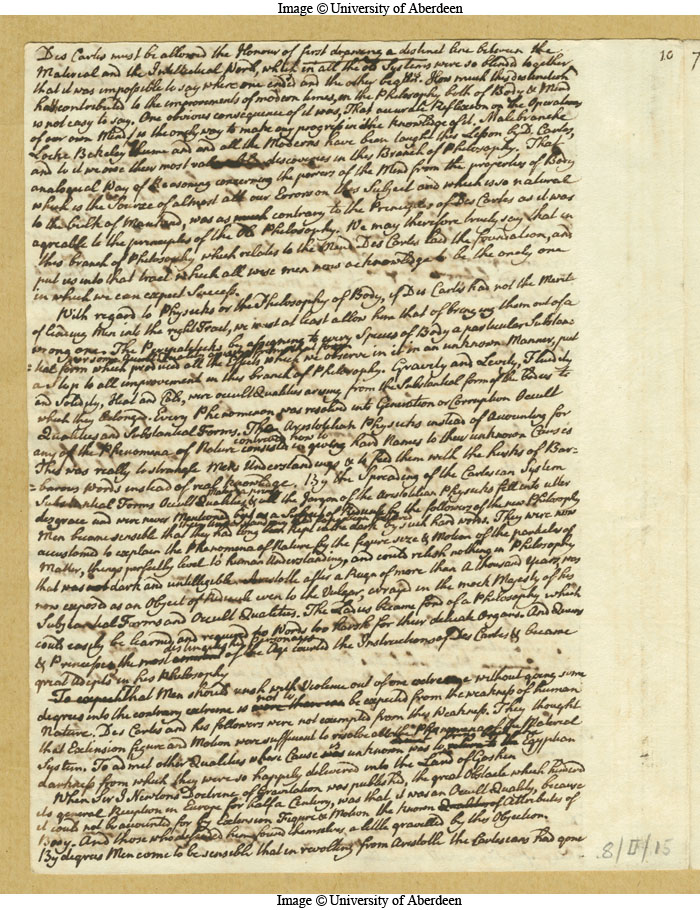 Image © University of Aberdeen
10
7
Des Cartes must be allowed the Honour of first drawing a distinct line between the
Material and the Intellectual World, which in all the old Systems were so blended together
that it was impossible to say where one ended and the other begins. How much this distinction
hath contributed to the improvements of modern times, in the Philosophy both of Body & Mind
is not easy to say. One obvious consequence of it was, That accurate Reflexion on the Operations
of our own Mind is the only way to make any progress in the knowledge of it. Malebranche
Locke Berkeley Hume and all the Moderns have been taught this Lesson by D. Cartes,
and to it we owe their most discoveries in this Branch of Philosophy. That
analogical Way of Reasoning concerning the powers of the Mind from the properties of Body
which is the Source of almost all our Errors on this Subject and which is so natural
to the bulk of Mankind, was as much contrary to the Principles of Des Cartes as it was
agreable to the principles of the Old Philosophy. We may therefore truely say that in
this branch of Philosophy which relates to the Mind Des Cartes laid the foundation, and
put us into that tract which all wise men now acknowledge to be the onely one
in which we can expect Success.
With regard to Physicks or the Philosophy of Body, if Des Cartes had not the Merit
of leading Men into the right Tract, we must at least allow him that of bringing them out of a
wrong one. The Peripateticks by assigning to every Species of Body a particular Substan-
tial form which produced all the effects which we observe in it in an unknown Manner, put
a Stop to all improvement in this branch of Philosophy. Gravity and Levity Fluidity
and Solidity, Heat and Cold, were occult Qualities arising from the Substantial form of the Bodies to
which they belonged. Every Phenomenon was resolved into Generation or Corruption Occult
Qualities and Substantial Forms. The Aristotelian Physicks instead of accounting for
any of the Phenomena of Nature contrived how to giving hard Names to their unknown Causes
This was really to strangle Mens Understandings & to feed them with the Husks of Bar-
barous Words instead of real knowledge. By the Spreading of the Cartesian System
Substantial Forms Occult Qualities & all the Jargon of the Aristotelian Physicks fell into utter
disgrace and were never Mentioned but as a Subject of Ridicule by the followers of the new Philosophy
Men became sensible that they had long been kept in the dark by such hard words. They were now
accustomed to explain the Phenomena of Nature by the figure size & Motion of the particles of
Matter, things perfectly level to human Understanding, and could relish nothing in Philosophy
that was dark and unintelligible. Aristotle after a Reign of more than a thousand Years, was
now exposed as an Object of Ridicule even to the Vulgar, arrayed in the mock Majesty of his
Substantial Forms and Occult Qualities. The Ladies became fond of a Philosophy which
could easily be learned and required no Words too harsh for their delicate Organs. And Queens
& Princesses the most distinguished Personages of the Age courted the Instructions of Des Cartes & became
great adepts in his Philosophy
To expect that Men should rush with Violence out of one extreme without going some
degrees into the contrary extreme is not to be expected from the weakness of human
Nature. Des Cartes and his followers were not exempted from this Weakness. They thought
that Extension figure and Motion were sufficient to resolve all the Phenomena of the Material
System. To admit other Qualities whose Cause was unknown was to Egyptian
darkness from which they were so happily delivered into the Land of Goshen
When Sir I Newtons Doctrine of Gravitation was published, the great Obstacle which hindred
its general Reception in Europe for half a Century, was that it was an Occult Quality, because
it could not be accounted for by Extension Figure & Motion the known Attributes of
Body. And those who defended him found themselves a little gravelled by this Objection.
By degrees Men come to be sensible that in revolting from Aristotle the Cartesians had gone
8/II/15
Image © University of Aberdeen